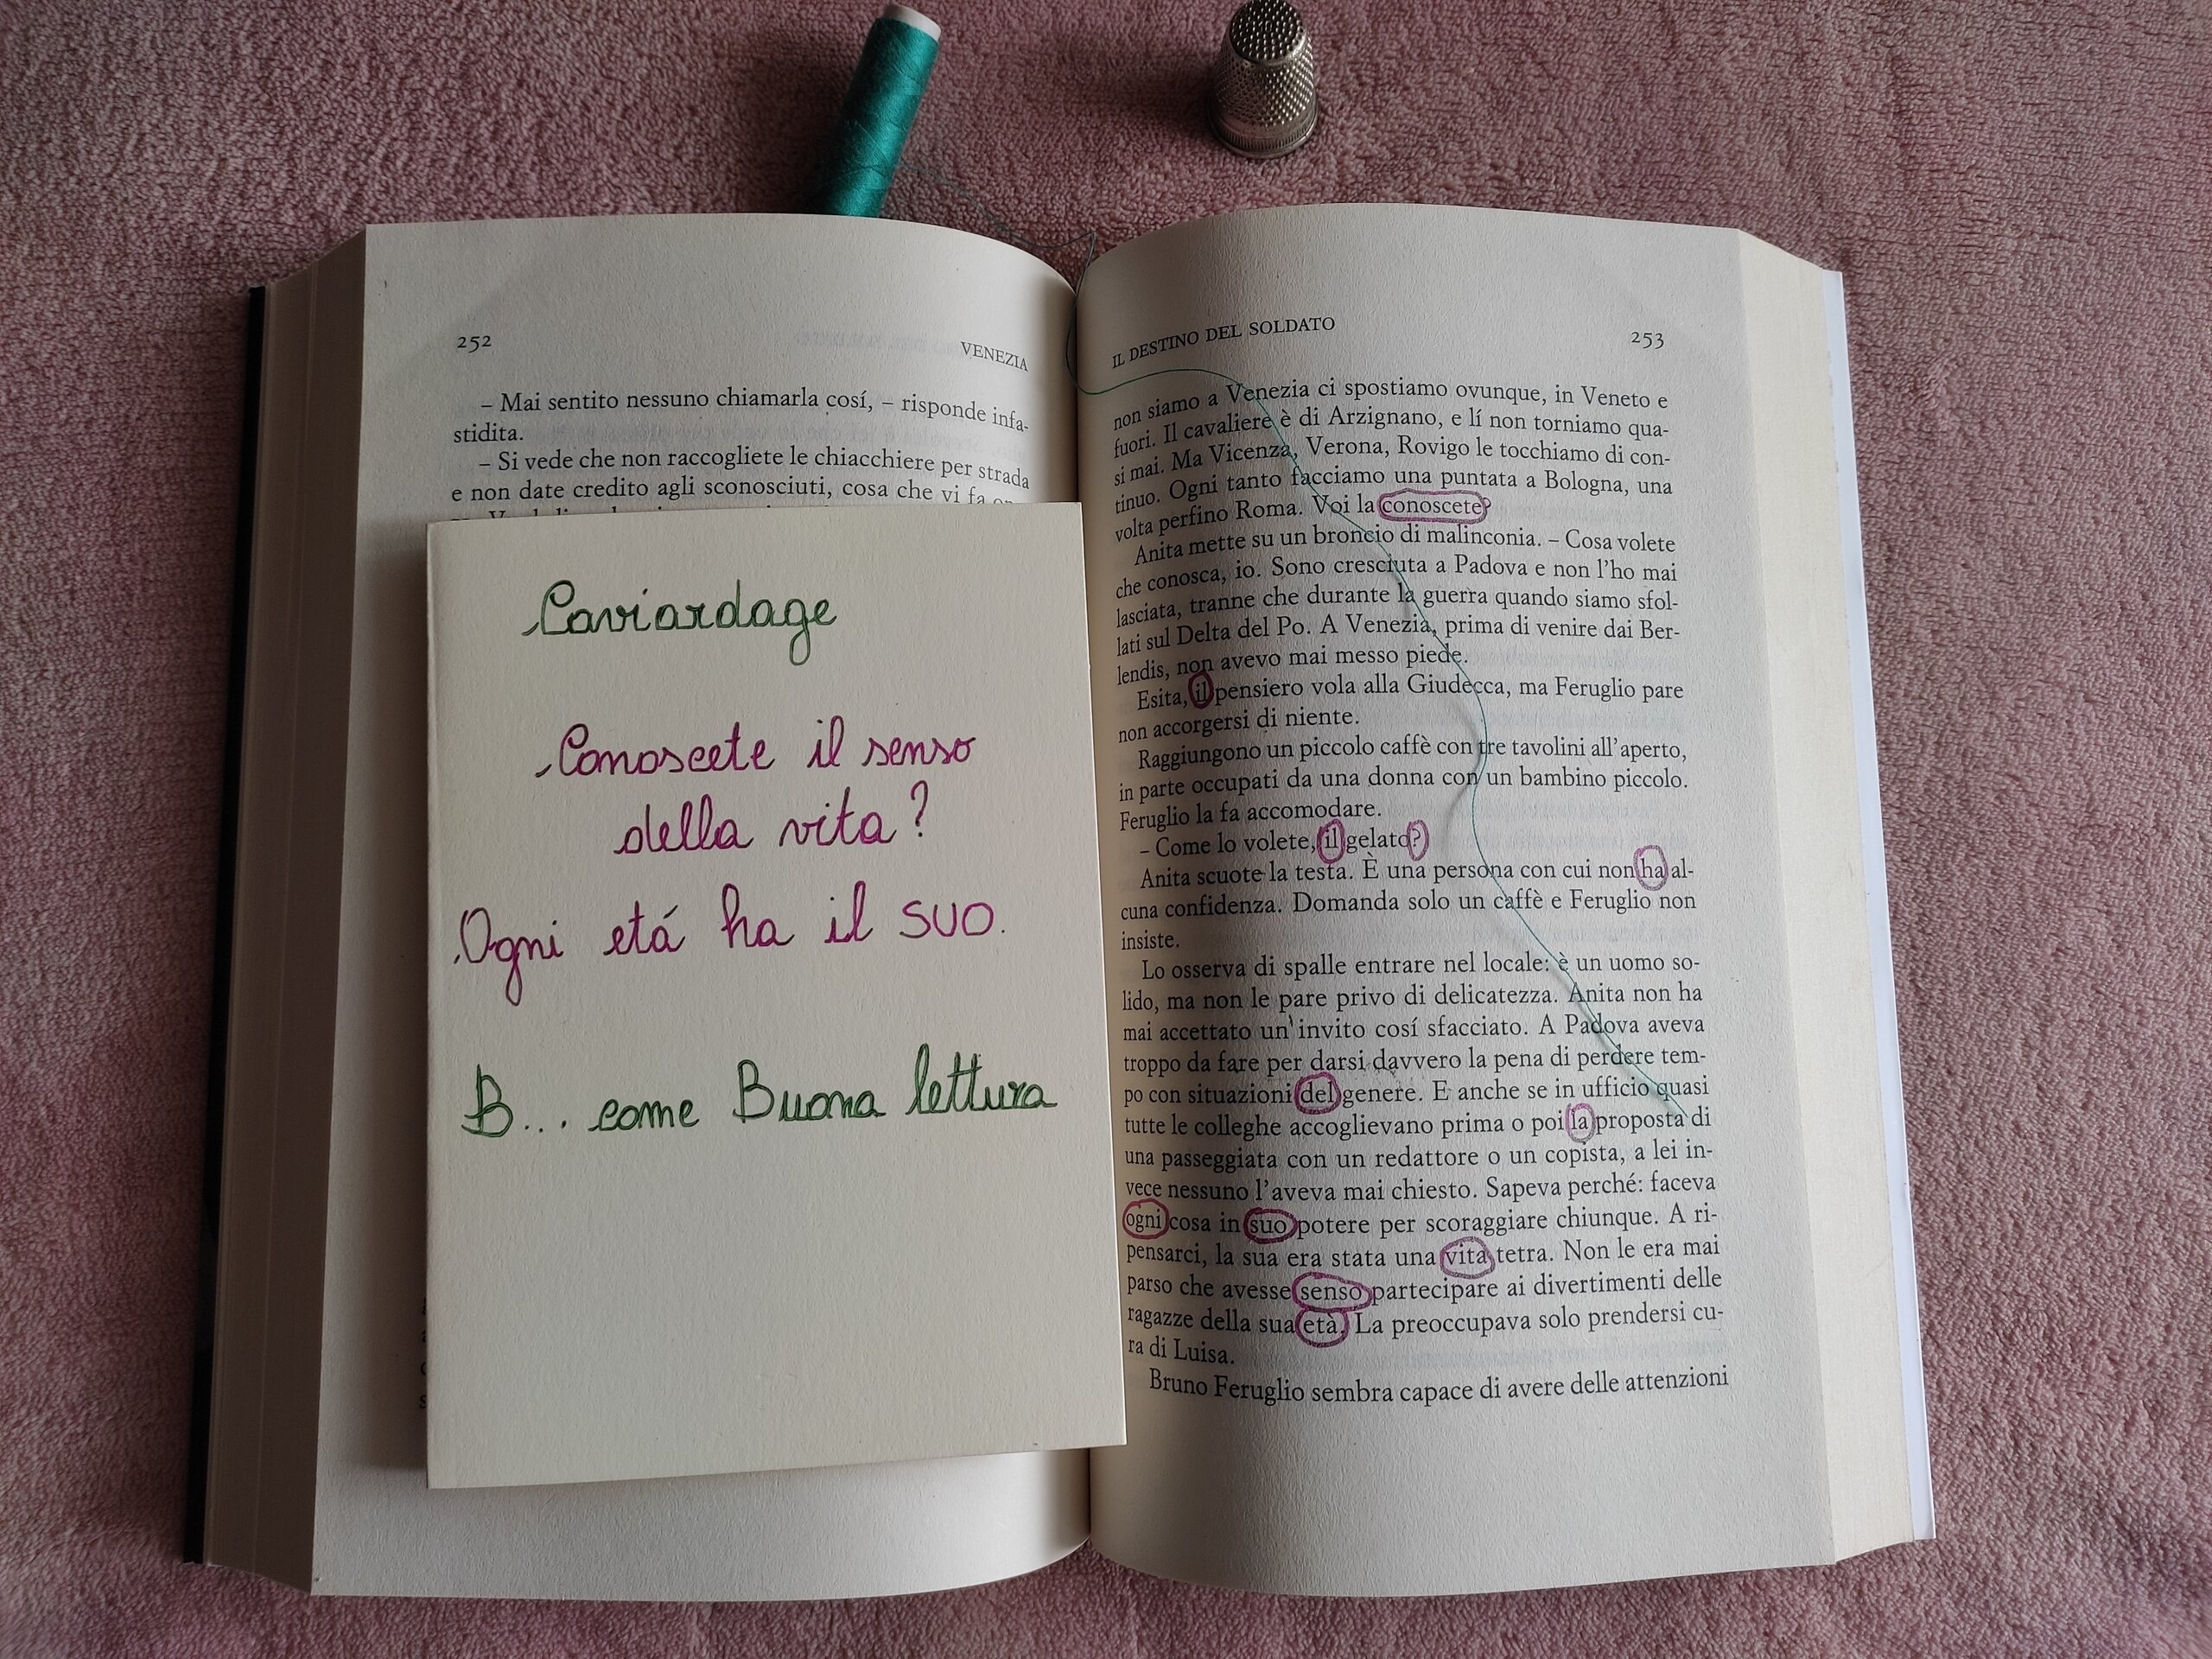 252
VENEZIA
– Mai sentito nessuno chiamarla cosí, – risponde infa-
stidita.
– Si vede che non raccogliete le chiacchiere per strada
e non date credito agli sconosciuti, cosa che vi fa
Caviardage
Conoscete il senso
della vita?
Ogni etá ha il SUO.
B... come Buona lettura
IL DESTINO DEL SOLDATO
253
non siamo a Venezia ci spostiamo ovunque, in Veneto e
fuori. Il cavaliere è di Arzignano, e lí non torniamo qua-
si mai. Ma Vicenza, Verona, Rovigo le tocchiamo di con-
tinuo. Ogni tanto facciamo una puntata a Bologna, una
volta perfino Roma. Voi la conoscete?
Anita mette su un broncio di malinconia. – Cosa volete
che conosca, io. Sono cresciuta a Padova e non l'ho mai
lasciata, tranne che durante la guerra quando siamo sfol-
lati sul Delta del Po. A Venezia, prima di venire dai Ber-
lendis, non avevo mai messo piede.
Esita, il pensiero vola alla Giudecca, ma Feruglio pare
non accorgersi di niente.
Raggiungono un piccolo caffè con tre tavolini all'aperto,
in parte occupati da una donna con un bambino piccolo.
Feruglio la fa accomodare.
– Come lo volete, il gelato?
Anita scuote la testa. È una persona con cui non ha al-
cuna confidenza. Domanda solo un caffè e Feruglio non
insiste.
Lo osserva di spalle entrare nel locale: è un uomo so-
lido, ma non le pare privo di delicatezza. Anita non ha
mai accettato un invito cosí sfacciato. A Padova aveva
troppo da fare per darsi davvero la pena di perdere tem-
po con situazioni del genere. E anche se in ufficio quasi
tutte le colleghe accoglievano prima o poi la proposta di
una passeggiata con un redattore o un copista, a lei in-
vece nessuno l'aveva mai chiesto. Sapeva perché: faceva
ogni cosa in suo potere per scoraggiare chiunque. A ri-
pensarci, la sua era stata una vita tetra. Non le era mai
parso che avesse senso partecipare ai divertimenti delle
ragazze della sua età. La preoccupava solo prendersi cu-
ra di Luisa.
Bruno Feruglio sembra capace di avere delle attenzioni